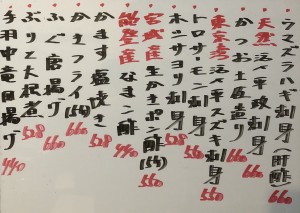 ウマズラハギ刺身(肝酢)
天然活〆平政刺身 660
かつお土佐造り 660
東京湾活〆平スズキ刺身 550
トロサーモン刺身 550
ホッサヨリ刺身 660
宮城産生かきポン酢(5ヶ) 550
能登産なまこ酢 440
かます塩焼き 528
かきフライ(5ヶ) 660
ふぐ唐揚げ 660
ぶりと大根煮 528
手羽中竜田揚げ 440